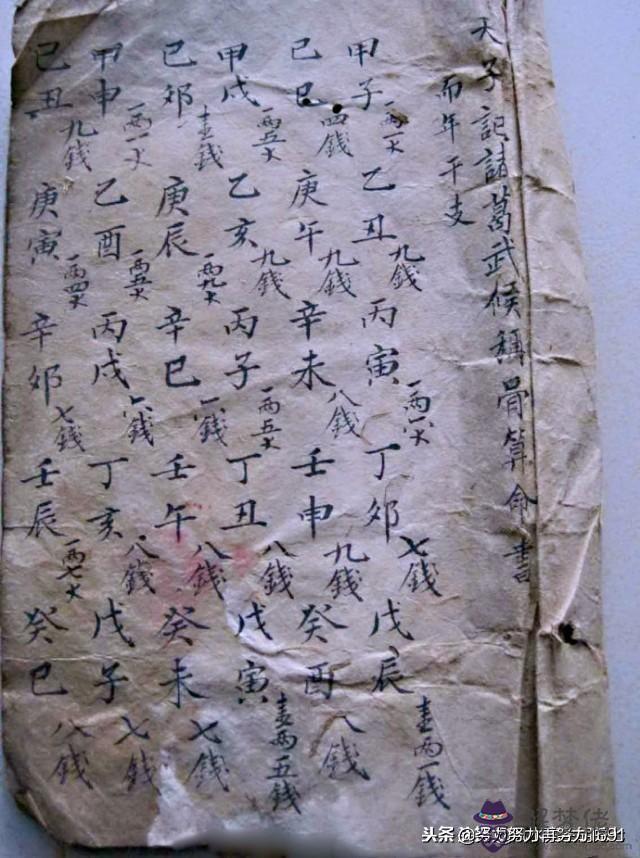 天子記諸葛武候稱骨算命書
而年干支
甲子 一两一大 乙丑 九錢 丙寅 丁卯 七錢 戊辰 壹两一錢
己巳 四錢 庚午 九錢 辛未 八錢 壬申 九錢 癸酉 八錢
甲戌 一两五大 乙亥 九錢 丙子 一两五大 丁丑 八錢 戊寅 壹两五錢
己卯 壹錢 庚辰 一两九大 辛巳 錢 壬午 八錢 癸未 七錢
甲申 一两一大 乙酉 一两五大 丙戌 六錢 丁亥 八錢 戊子 七錢
己丑 九錢 庚寅 一两四大 辛卯 七錢 壬辰 一两七大 癸巳 八錢
头条